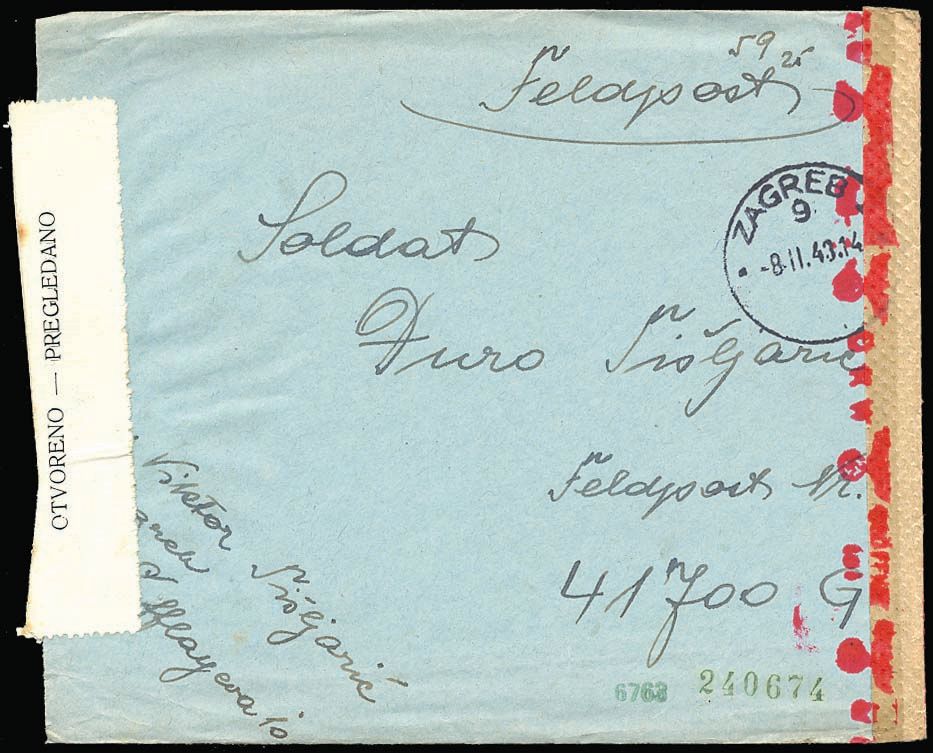 59 25
Feldpost
ZAGREB
9
-8.II.43.14
Soldat
Đuro Tišljarić
Feldpost Nr.
41700 G
OTVORENO — PREGLEDANO
Viktor Tišljarić
6763 240674